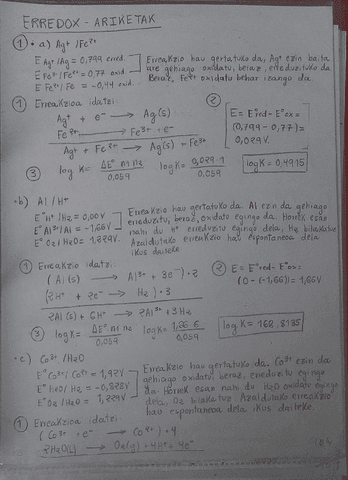 ERREDOX - ARIKETAK
① • a) Ag⁺ / Fe²⁺
E Ag⁺/Ag = 0,799 erred.
E Fe³⁺/Fe²⁺ = 0,77 oxid
E Fe²⁺/Fe = -0,44 oxid.
Erreakzio hau gertatuko da, Ag⁺ ezin baita
are gehiago oxidatu, beraz, erreduzituko da.
Beraz, Fe²⁺ oxidatu behar izango da.
① Erreakzioa idatzi:
Ag⁺ + e⁻ → Ag(s)
Fe²⁺ → Fe³⁺ + e⁻
Ag⁺ + Fe²⁺ → Ag(s) + Fe³⁺
② E = E°red - E°ox =
(0,799 - 0,77) =
0,029V.
③ log K = ΔE° n1 n2 / 0,059 log K = 0,029·1 / 0,059
log K = 0,4915
• b) Al / H⁺
E° H⁺/H2 = 0,00V
E° Al³⁺/Al = -1,66V
E° O2/H2O = 1,229V.
Erreakzio hau gertatuko da. Al ezin da gehiago
erreduzitu, beraz, oxidatu egingo da. Horrek esan
nahi du H⁺ erreduzitu egingo dela, H2 bilakatuz
Azaldutako erreakzio hau espontaneoa dela
ikus daiteke
① Erreakzioa idatzi:
(Al(s) → Al³⁺ + 3e⁻)·2
(2H⁺ + 2e⁻ → H2)·3
2Al(s) + 6H⁺ → 2Al³⁺ + 3H2
② E = E°red - E°ox =
(0 - (-1,66)) = 1,66V
③ log K = ΔE° n1 n2 / 0,059 log K = 1,66·6 / 0,059
log K = 168,8135
• c) Co³⁺ / H2O
E° Co³⁺/Co²⁺ = 1,92V
E° H2O/H2 = -0,828V
E° O2/H2O = 1,229V
Erreakzio hau gertatuko da. Co³⁺ ezin da
gehiago oxidatu, beraz, erreduzitu egingo
da. Horrek esan nahi du H2O oxidatu egingo
dela, O2 bilakatuz. Azaldutako erreakzio
hau espontaneoa dela ikus daiteke.
① Erreakzioa idatzi:
(Co³⁺ + e⁻ → Co²⁺)·4
2H2O(l) → O2(g) + 4H⁺ + 4e⁻